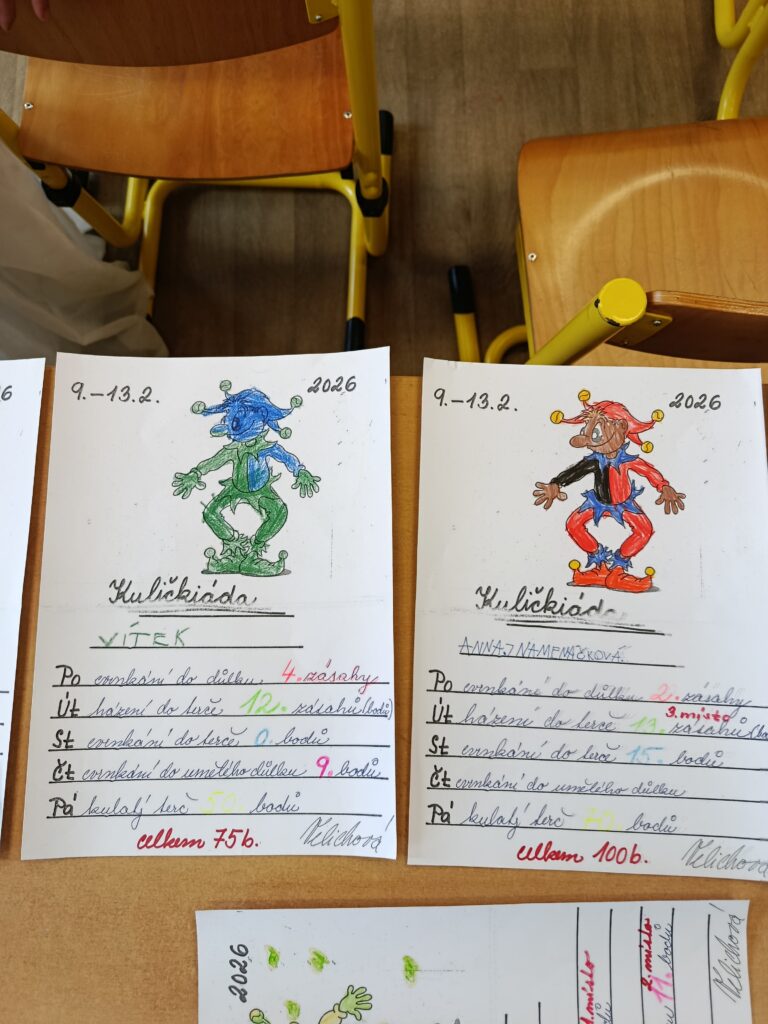 6
9.-13.2. 2026
Kuličkiáda
VÍTEK
Po cvrnkání do důlku 4. zásahy
Út házení do terče 12. zásahů (bodů)
St cvrnkání do terče 0. bodů
Čt cvrnkání do umělého důlku 9. bodů
Pá kulatý terč 50. bodů
celkem 75b. Velichová
9.-13.2. 2026
Kuličkiáda
Po cvrnkání do důlku 2. zásahy
3. místo
Út házení do terče 13. zásahů
St cvrnkání do terče 15. bodů
Čt cvrnkání do umělého důlku
Pá kulatý terč 70. bodů
celkem 100b. Velichová
2026
1. místo
bodů
2. místo
11. bodů
Velichová